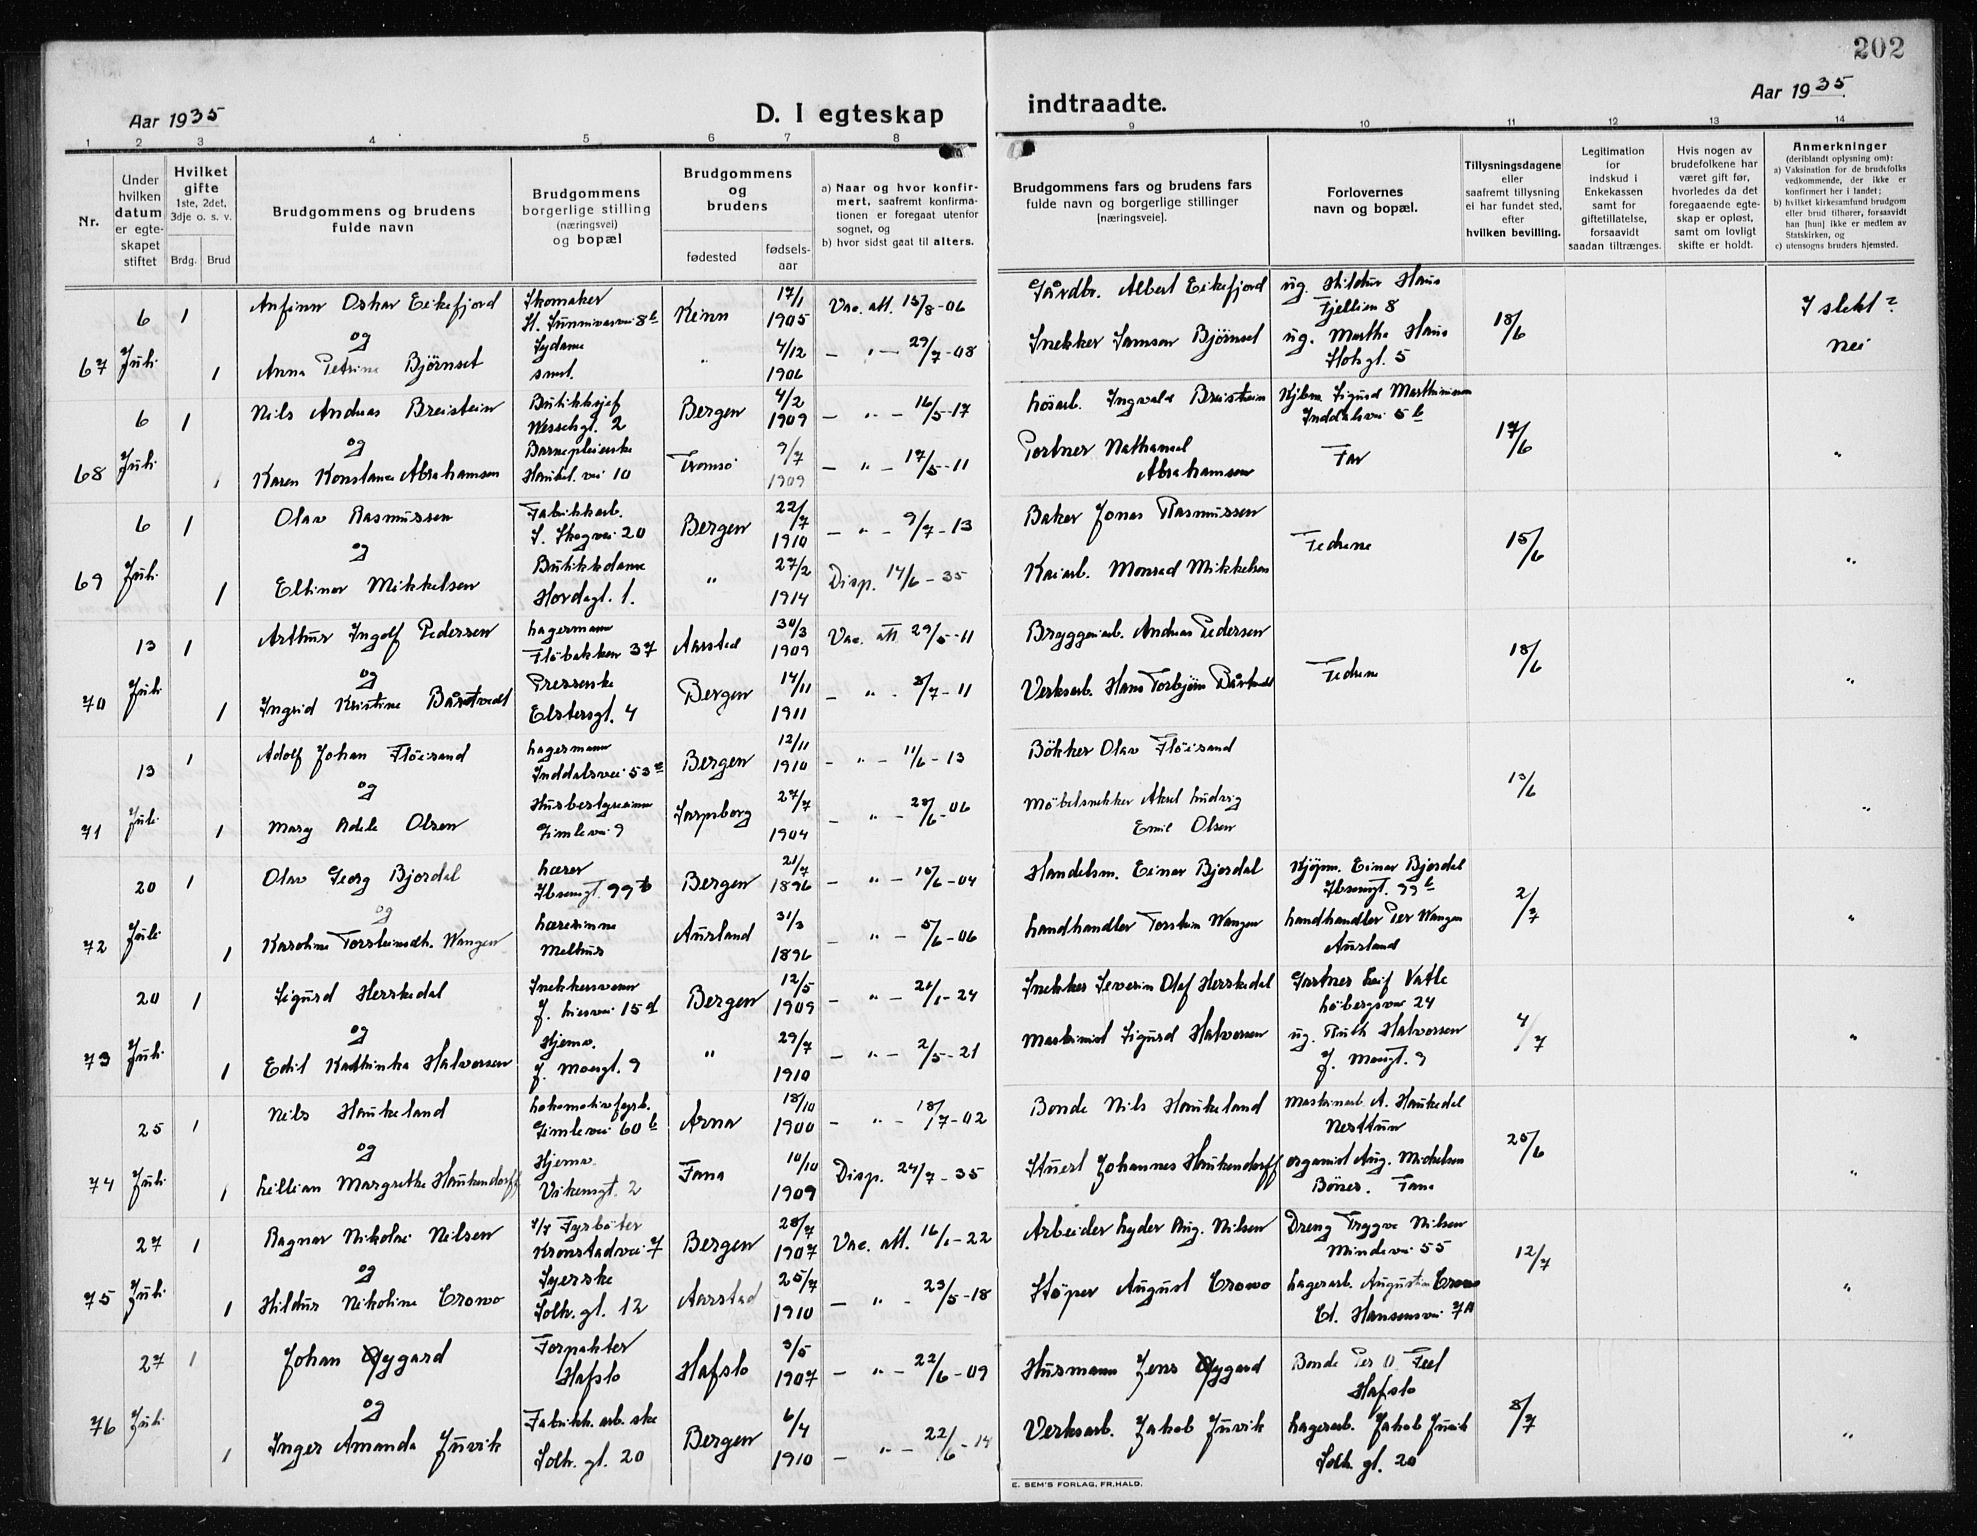 202
Aar 1935
D. I egteskap indtraadte.
Aar 1935
1 2 3 4 5 6 7 8 9 10 11 12 13 14
Nr.
Under hvilken datum er egte-skapet stiftet
Hvilket gifte
1ste, 2det, 3dje o. s. v.
Brdg. Brud
Brudgommens og brudens
fulde navn
Brudgommens
borgerlige stilling
(næringsvei)
og bopæl
Brudgommens
og
brudens
fødested
fødsels-aar
a) Naar og hvor konfir-
mert, saafremt konfirma-
tionen er foregaat utenfor
sognet, og
b) hvor sidst gaat til alters.
Brudgommens fars og brudens fars
fulde navn og borgerlige stillinger
[næringsveie].
Forlovernes
navn og bopæl.
Tillysningsdagene
eller
saafremt tillysning
ei har fundet sted,
efter
hvilken bevilling.
Legitimation
for
indskud i
Enkekassen
samt for
giftetillatelse,
forsaavidt
saadan tiltrænges.
Hvis nogen av
brudefolkene har
været gift før,
hvorledes da det
foregaaende egte-
skap er opløst,
samt om lovligt
skifte er holdt.
Anmerkninger
(deriblandt oplysning om):
a) Vaksination for de brudefolks
vedkommende, der ikke er
konfirmert her i landet;
b) hvilket kirkesamfund brudgom
eller brud tilhører, forsaavidt
han [hun] ikke er medlem av
Statskirken, og
c) utensogns bruders hjemsted.
67 6 Juli 1 Anfinn Oskar Eikefjord Skomaker Kinn 17/1 1905 Vac. att. 15/8-06 Gårdbr. Albert Eikefjord ug. Hildur Haus Fjellien 8 18/6 I slekt?
og
1 Anna Petrine Bjørnset Sydame smst. " 4/12 1906 — " — 29/7-08 Snekker Samson Bjørnset ug. Martha Haus gt. 5 nei
68 6 Juli 1 Nils Andreas Breistein Butikksjef Wesselsgt. 2 Bergen 4/2 1909 — " — 16/5-17 Løsarb. Ingvald Breistein Kjbm. Sigurd Inddalsvei 5b 17/6
og
1 Karen Konstance Abrahamsen Barnepleierske Haukel. vei 10 Tromsö 9/7 1909 — " — 17/5-11 Portner Nathanael Abrahamsen Far "
69 6 Juli 1 Olav Rasmussen Fabrikkarb. S. Skogvei 20 Bergen 22/7 1910 — " — 9/7-13 Baker Jonas Rasmussen Fedrene 15/6
og
1 Ellinor Mikkelsen Butikkdame Hordagt. 1. " 27/2 1914 Disp. 14/6-35 Kaiarb. Monrad Mikkelsen "
70 13 Juli 1 Arthur Ingolf Pedersen Lagermann Fløbakken 37 Aarstad 30/3 1909 Vac. att 29/5-11 Bryggeriarb. Andreas Pedersen Fedrene 18/6
og
1 Ingrid Kristine Båstvedt Presserske Elstersgt. 4 Bergen 14/11 1911 — " - 8/7-11 Verksarb. Hans Torbjørn "
71 13 Juli 1 Adolf Johan Fløisand Lagermann Inddalsvei 53 Bergen 12/11 1910 — " — 11/6-13 Bökker Olav Fløisand 13/6
og
1 Mary Adele Olsen Husbestyrerinne Gimlevei 9 Sarpsborg 27/7 1904 — " — 28/6-06 Möbelsnekker Aksel Ludvig Emil Olsen "
72 20 Juli 1 Olav Georg Bjordal Lærer Ibsensgt. 99b Bergen 21/7 1896 — " — 18/6-04 Handelsm. Einar Bjordal Kjöpm. Einar Bjordal Ibsensgt. 99b 2/7
og
1 Karoline Torsteinsdtr. Wangen Lærerinne Melhus Aurland 31/3 1896 — " — 5/6-06 Landhandler Torstein Wangen Landhandler Per Wangen Aurland "
73 20 Juli 1 Sigurd Herskedal Snekkersvenn J. Liesvei 15d Bergen 12/5 1909 — " — 21/1-24 Snekker Severin Olaf Herskedal Gartner Leif Vatle Löbergsvei 24 4/7
og
1 Edit Kathinka Halvorsen Hjemv. J. Moesgt. 9 " 29/7 1910 — " — 2/5-21 Maskinist Sigurd Halvorsen ug. Ruth Halvorsen J. Moesgt. 9 "
74 25 Juli 1 Nils Haukeland Lokomotivfyrb. Gimlevei 60b Arna 18/10 1900 — " — 18/7-02 Bonde Nils Haukeland Maskinarb. A. Haukedal Nesttun 25/6
og
1 Lillian Margrethe Haukendorff Hjemv. Vikensgt. 2 Fana 10/10 1909 Disp. 24/7-35 Stuert Johannes Haukendorff organist Aug. Michelsen Bönes. Fana "
75 27 Juli 1 Ragnar Nikolai Nilsen Fyrböter Kronstadvei 7 Bergen 28/7 1907 Vac. att. 16/1-22 Arbeider Lyder Aug. Nilsen Dreng Trygve Nilsen Mindevei 55 12/7
og
1 Hildur Nikoline Crowo Syerske Solh. gt. 12 Aarstad 25/7 1910 — " - 23/5-18 Stöper August Crowo Lagerarb. Augustin Crowo Ed. Hansensvei 7A "
76 27 Juli 1 Johan Øygard Forpakter Hafslo Hafslo 3/5 1907 — " — 22/6-09 Husmann Jens Øygard Bonde Per O. Hafslo 8/7
og
1 Inger Amanda Juvik Fabrikk.arb.ske Solh. gt. 20 Bergen 6/4 1910 — " — 22/6-14 Verksarb. Jakob Juvik Lagerarb. Jakob Juvik Solh. gt. 20 "
E. SEM'S FORLAG, FR.HALD.